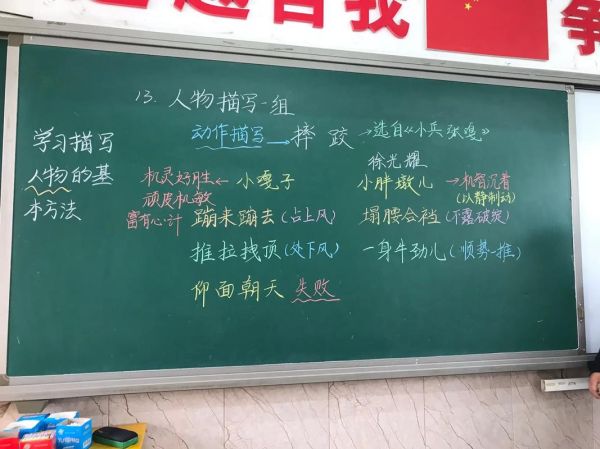 越 自我
争
13. 人物描写一组
学习描写
人物的基
本方法
动作描写→摔跤→选自《小兵张嘎》
徐光耀
机灵好胜←小嘎子 小胖墩儿→机智沉着
顽皮机敏 (以静制动)
富有心计 蹦来蹦去(占上风) 塌腰合裆(不露破绽)
推拉拽顶(处下风) 一身牛劲儿(顺势一推)
仰面朝天 失败